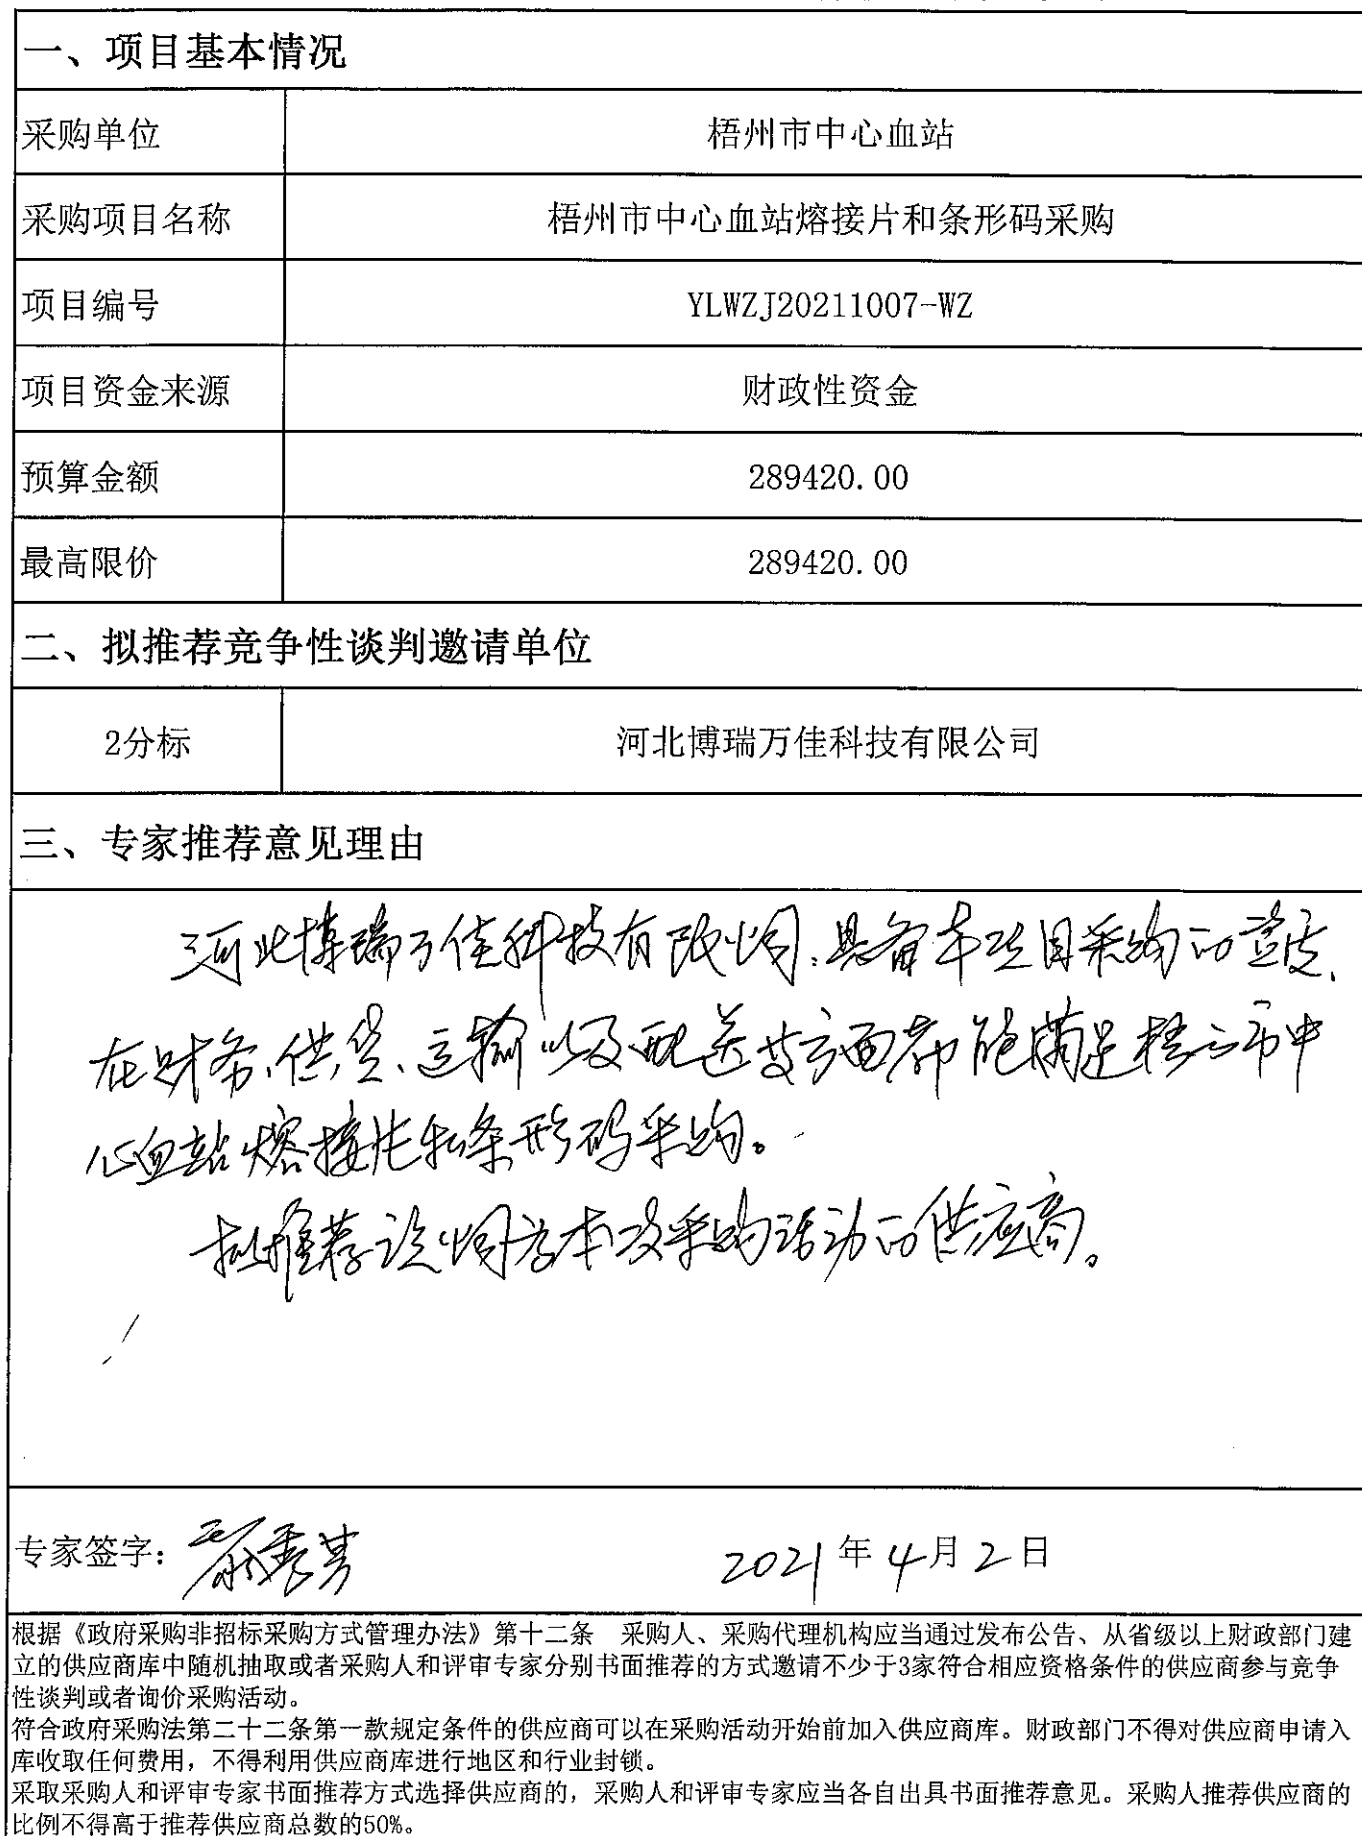 一、项目基本情况
采购单位 梧州市中心血站
采购项目名称 梧州市中心血站熔接片和条形码采购
项目编号 YLWZJ20211007-WZ
项目资金来源 财政性资金
预算金额 289420.00
最高限价 289420.00
二、拟推荐竞争性谈判邀请单位
2分标 河北博瑞万佳科技有限公司
三、专家推荐意见理由
河北博瑞万佳科技有限公司,具备本项目采购的资质,
在财务、供货、运输以及配送等方面都能满足梧州市中
心血站熔接片和条形码采购。
拟推荐该公司为本次采购活动的供应商。
专家签字: 2021年4月2日
根据《政府采购非招标采购方式管理办法》第十二条 采购人、采购代理机构应当通过发布公告、从省级以上财政部门建
立的供应商库中随机抽取或者采购人和评审专家分别书面推荐的方式邀请不少于3家符合相应资格条件的供应商参与竞争
性谈判或者询价采购活动。
符合政府采购法第二十二条第一款规定条件的供应商可以在采购活动开始前加入供应商库。财政部门不得对供应商申请入
库收取任何费用，不得利用供应商库进行地区和行业封锁。
采取采购人和评审专家书面推荐方式选择供应商的，采购人和评审专家应当各自出具书面推荐意见。采购人推荐供应商的
比例不得高于推荐供应商总数的50%。